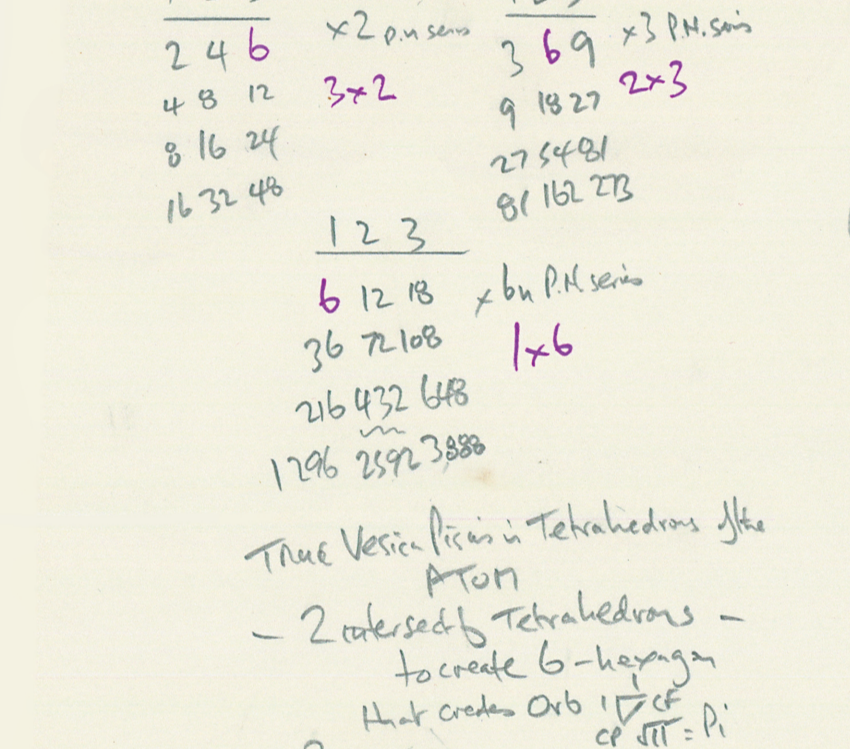 2 4 6 x2 p.n series
4 8 12 3x2
8 16 24
16 32 48
3 6 9 x3 P.N. series
9 18 27 2x3
27 54 81
81 162 273
1 2 3
6 12 18 x 6n P.N series
36 72 108 1x6
216 432 648
1296 2592 3,888
True Vesica Piscis in Tetrahedrons of the
ATOM
- 2 intersect Tetrahedrons -
to create 6-hexagon
that creates Orb 1 1 CF
CP √π = Pi